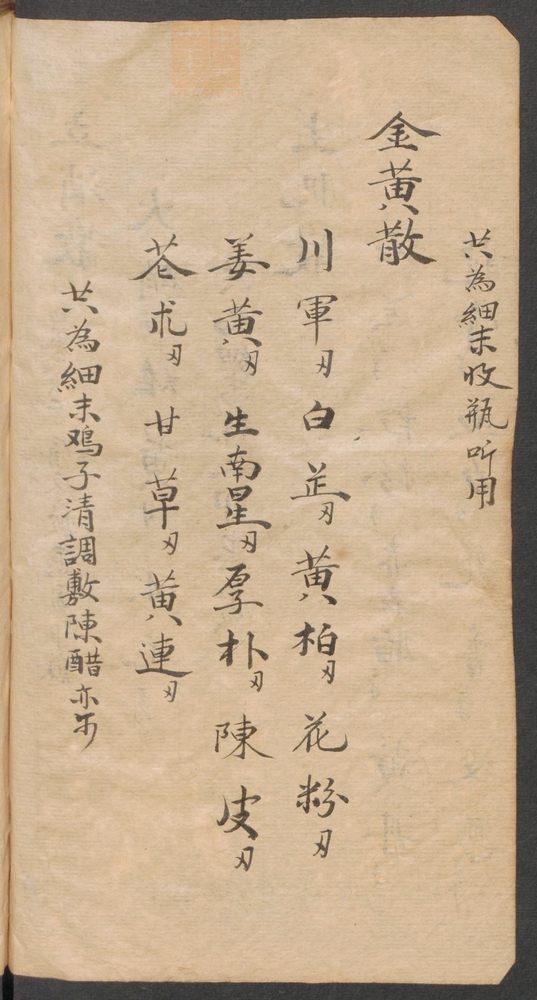 共為細末收瓶听用
金黄散
川軍刄白芷刄黄柏刄花粉刄
姜黄刄生南星刄厚朴刄陳皮刄
苍朮刄甘草刄黄連刄
共為細末鸡子清調敷陳醋亦可